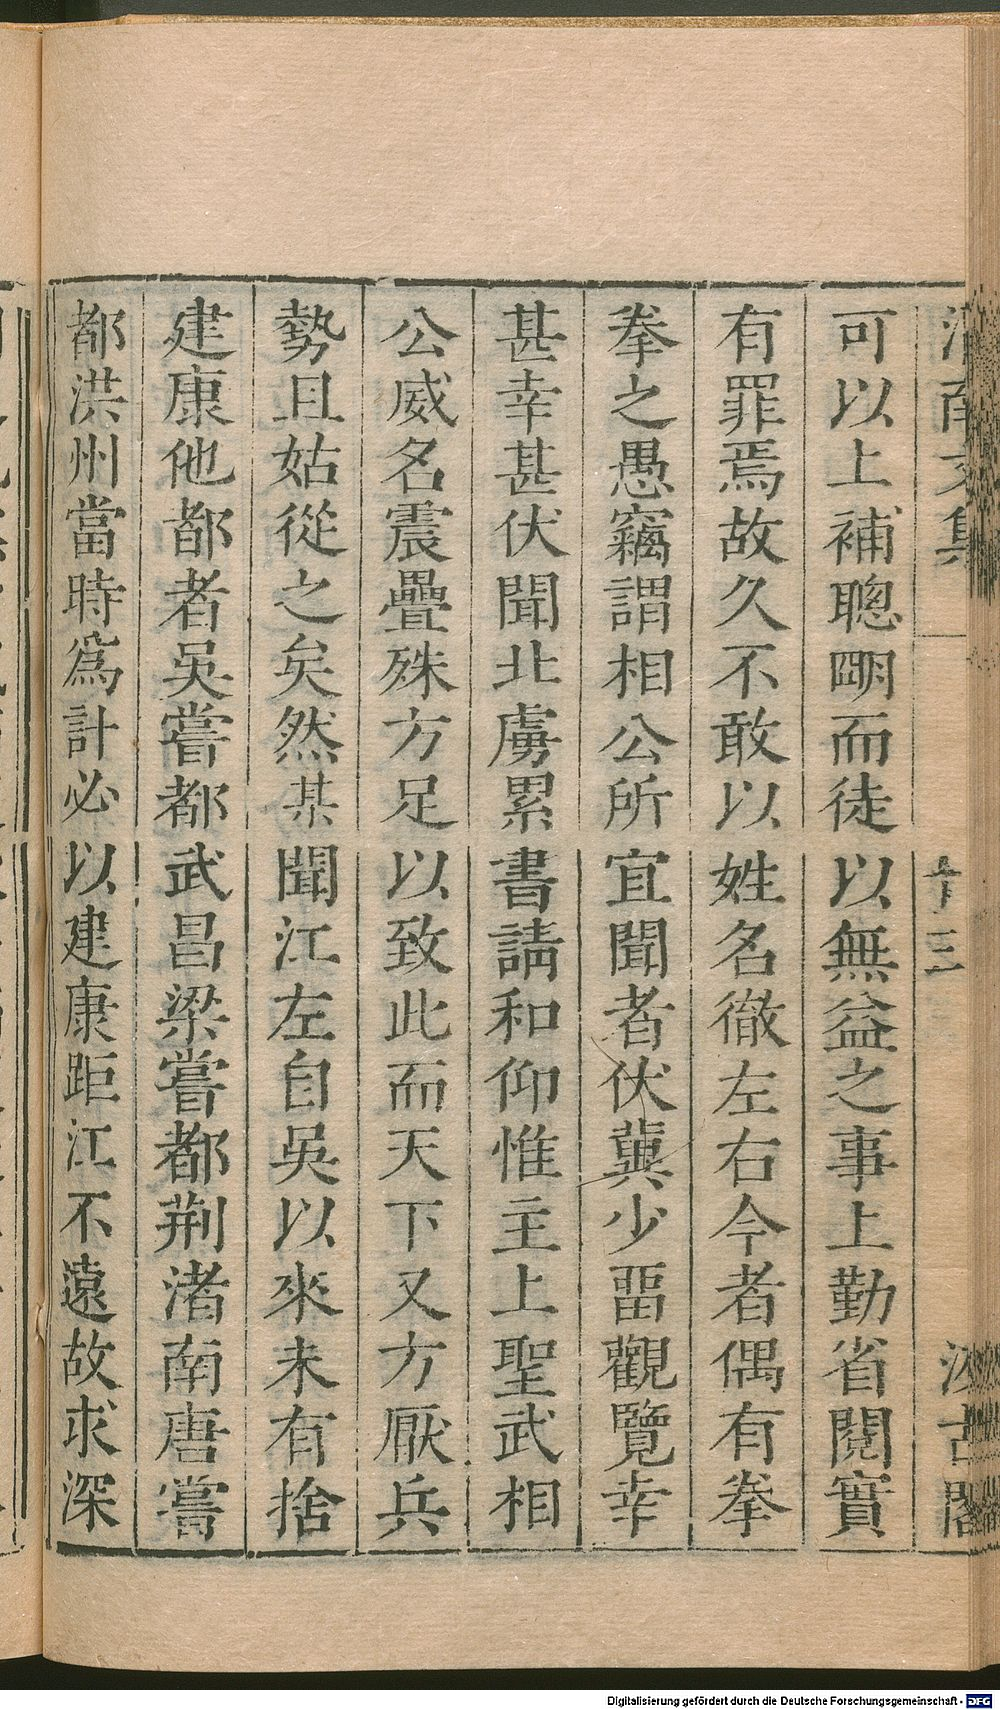 渭南文集
十三
汲古閣
可以上補聰明而徒以無益之事上勤省閱實
有罪焉故久不敢以姓名徹左右今者偶有拳
拳之愚竊謂相公所宜聞者伏冀少畱觀覽幸
甚幸甚伏聞北虜累書請和仰惟主上聖武相
公威名震疊殊方足以致此而天下又方厭兵
勢且姑從之矣然某聞江左自吳以來未有捨
建康他都者吳嘗都武昌梁嘗都荆渚南唐嘗
都洪州當時爲計必以建康距江不遠故求深
Digitalisierung gefördert durch die Deutsche Forschungsgemeinschaft - DFG